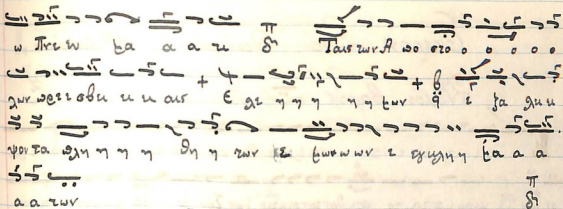 ω Πνε υ μα α α τι Π δι Ταις των Α πο στο ο ο ο ο ο
λων πρε ε σβει ει ει αις + Ε λε η η η η η μων + ε ξα λει ει
ψον τα πλη η η η θη η των ε μων ων ων ε εγκλη η μα α α
α α των Π δι